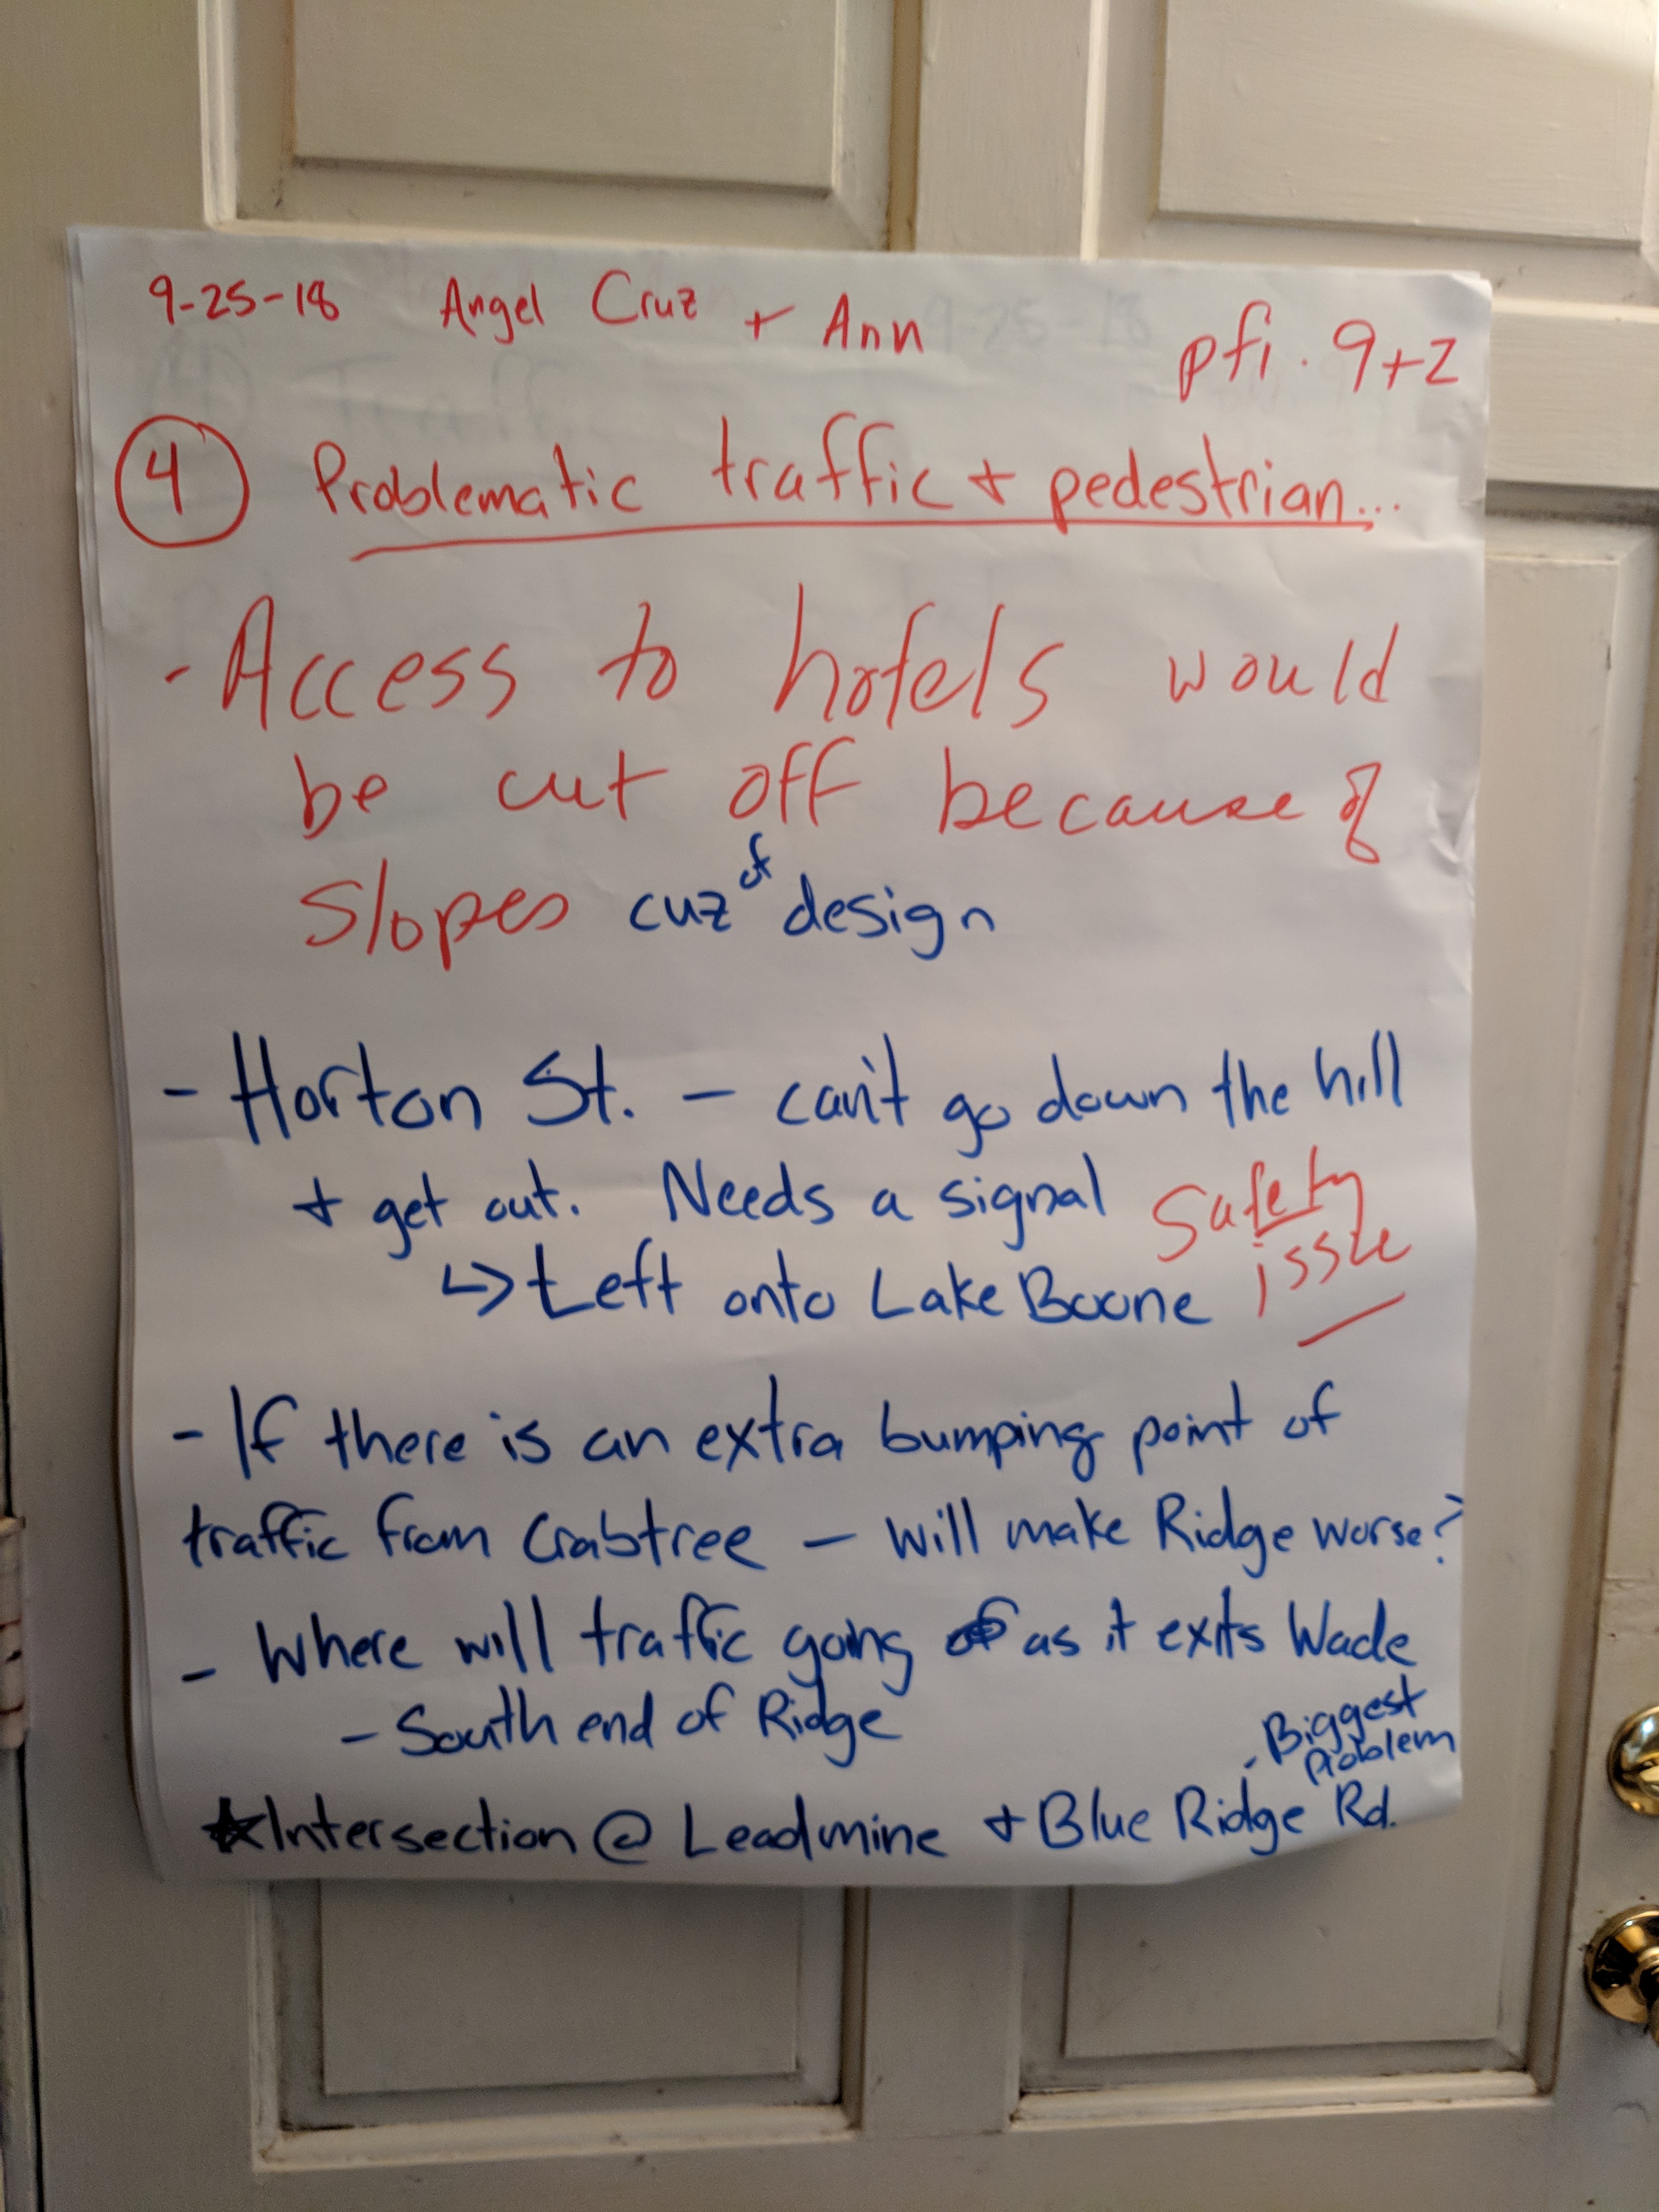 9-25-18 Angel Cruz + Ann
pfi. 9+2
4 Problematic traffic + pedestrian...
- Access to hotels would
be cut off because of
slopes cuz of design
- Horton St. - can't go down the hill
+ get out. Needs a signal Safety
↳ Left onto Lake Boone issue
- If there is an extra bumping point of
traffic from Crabtree - will make Ridge worse?
- Where will traffic going as it exits Wade
- South end of Ridge
- Biggest
Problem
☆Intersection @ Leadmine + Blue Ridge Rd.